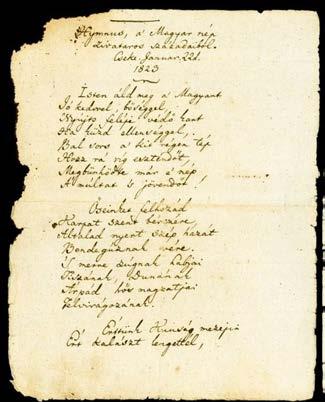 Hymnus, a' Magyar nép
Zivataros századaiból.
Cseke Januar. 22d.
1823
Isten áld meg a Magyart
Jó kedvvel, bőséggel,
Nyújts feléje védő kart
Ha küzd ellenséggel,
Bal sors a' kit régen tép
Hozz rá víg esztendőt,
Megbűnhödte már e' nép
A' multat 's jövendőt!
Őseinket felhozád
Kárpát szent bérczére,
Általad nyert szép hazát
Bendegúznak vére.
'S merre zúgnak habjai
Tiszának, Dunának
Árpád hős magzatjai
Felvirágozának.
Értünk Kunság mezején
Ért kalászt lengettél,